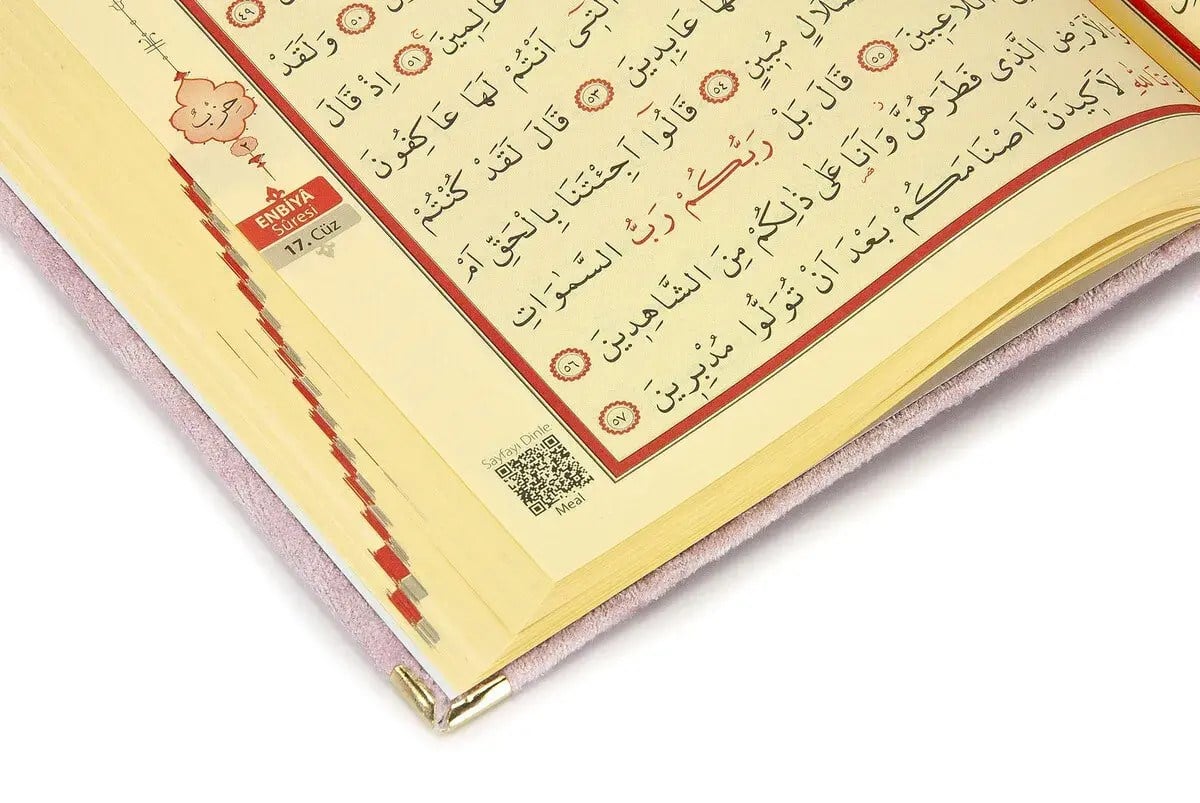 ٤٩
٥٠ وَلَقَدْ
عَالِمِينَ ٥١ اِذْ قَالَ
الَّتِٓى اَنْتُمْ لَهَا عَاكِفُونَ
عَابِدِينَ ٥٣ قَالَ لَقَدْ كُنْتُمْ
مُبِينٍ ٥٤ قَالُٓوا اَجِئْتَنَا بِالْحَقِّ اَمْ
اللَّاعِبِينَ ٥٥ قَالَ بَلْ رَبُّكُمْ رَبُّ السَّمٰوَاتِ
الَّذِى فَطَرَهُنَّ وَاَنَا عَلٰى ذٰلِكُمْ مِنَ الشَّاهِدِينَ ٥٦
لَاَكِيدَنَّ اَصْنَامَكُمْ بَعْدَ اَنْ تُوَلُّوا مُدْبِرِينَ ٥٧
حِزْبٌ
٢
ENBİYÂ
Sûresi
17. Cüz
Sayfayı Dinle
Meal